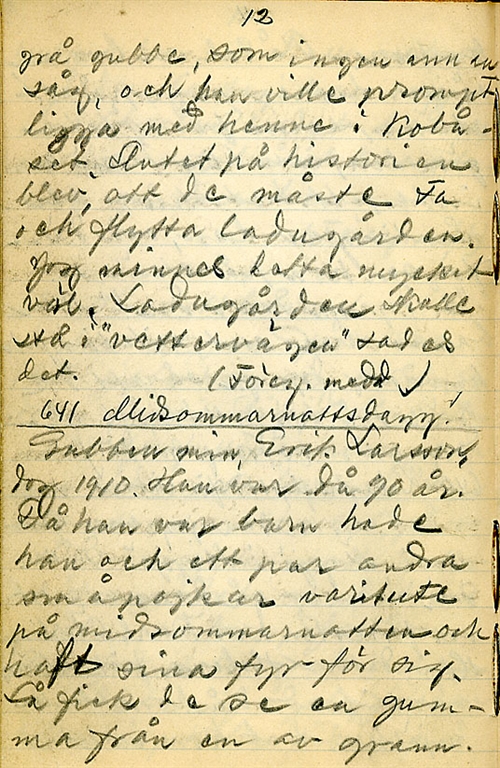 12
grå gubbe, som ingen ann en
såg, och han ville prompt
ligga med henne i Kobå-
set. Slutet på historien
blev, att de måste ta
och flytta ladugården.
Jag minnes detta mycket
väl. Ladugården skulle
stå i "vettervägen" sades
det. (Föreg. medd.)
641 Midsommarnattsdagg.
Gubben min, Erik Larsson,
dog 1910. Han var då 90 år.
Då han var barn hade
han och ett par andra
småpojkar varit ute
på midsommarnatten och
haft sina fyr för sig.
Så fick de se en gum-
ma från en av grann-